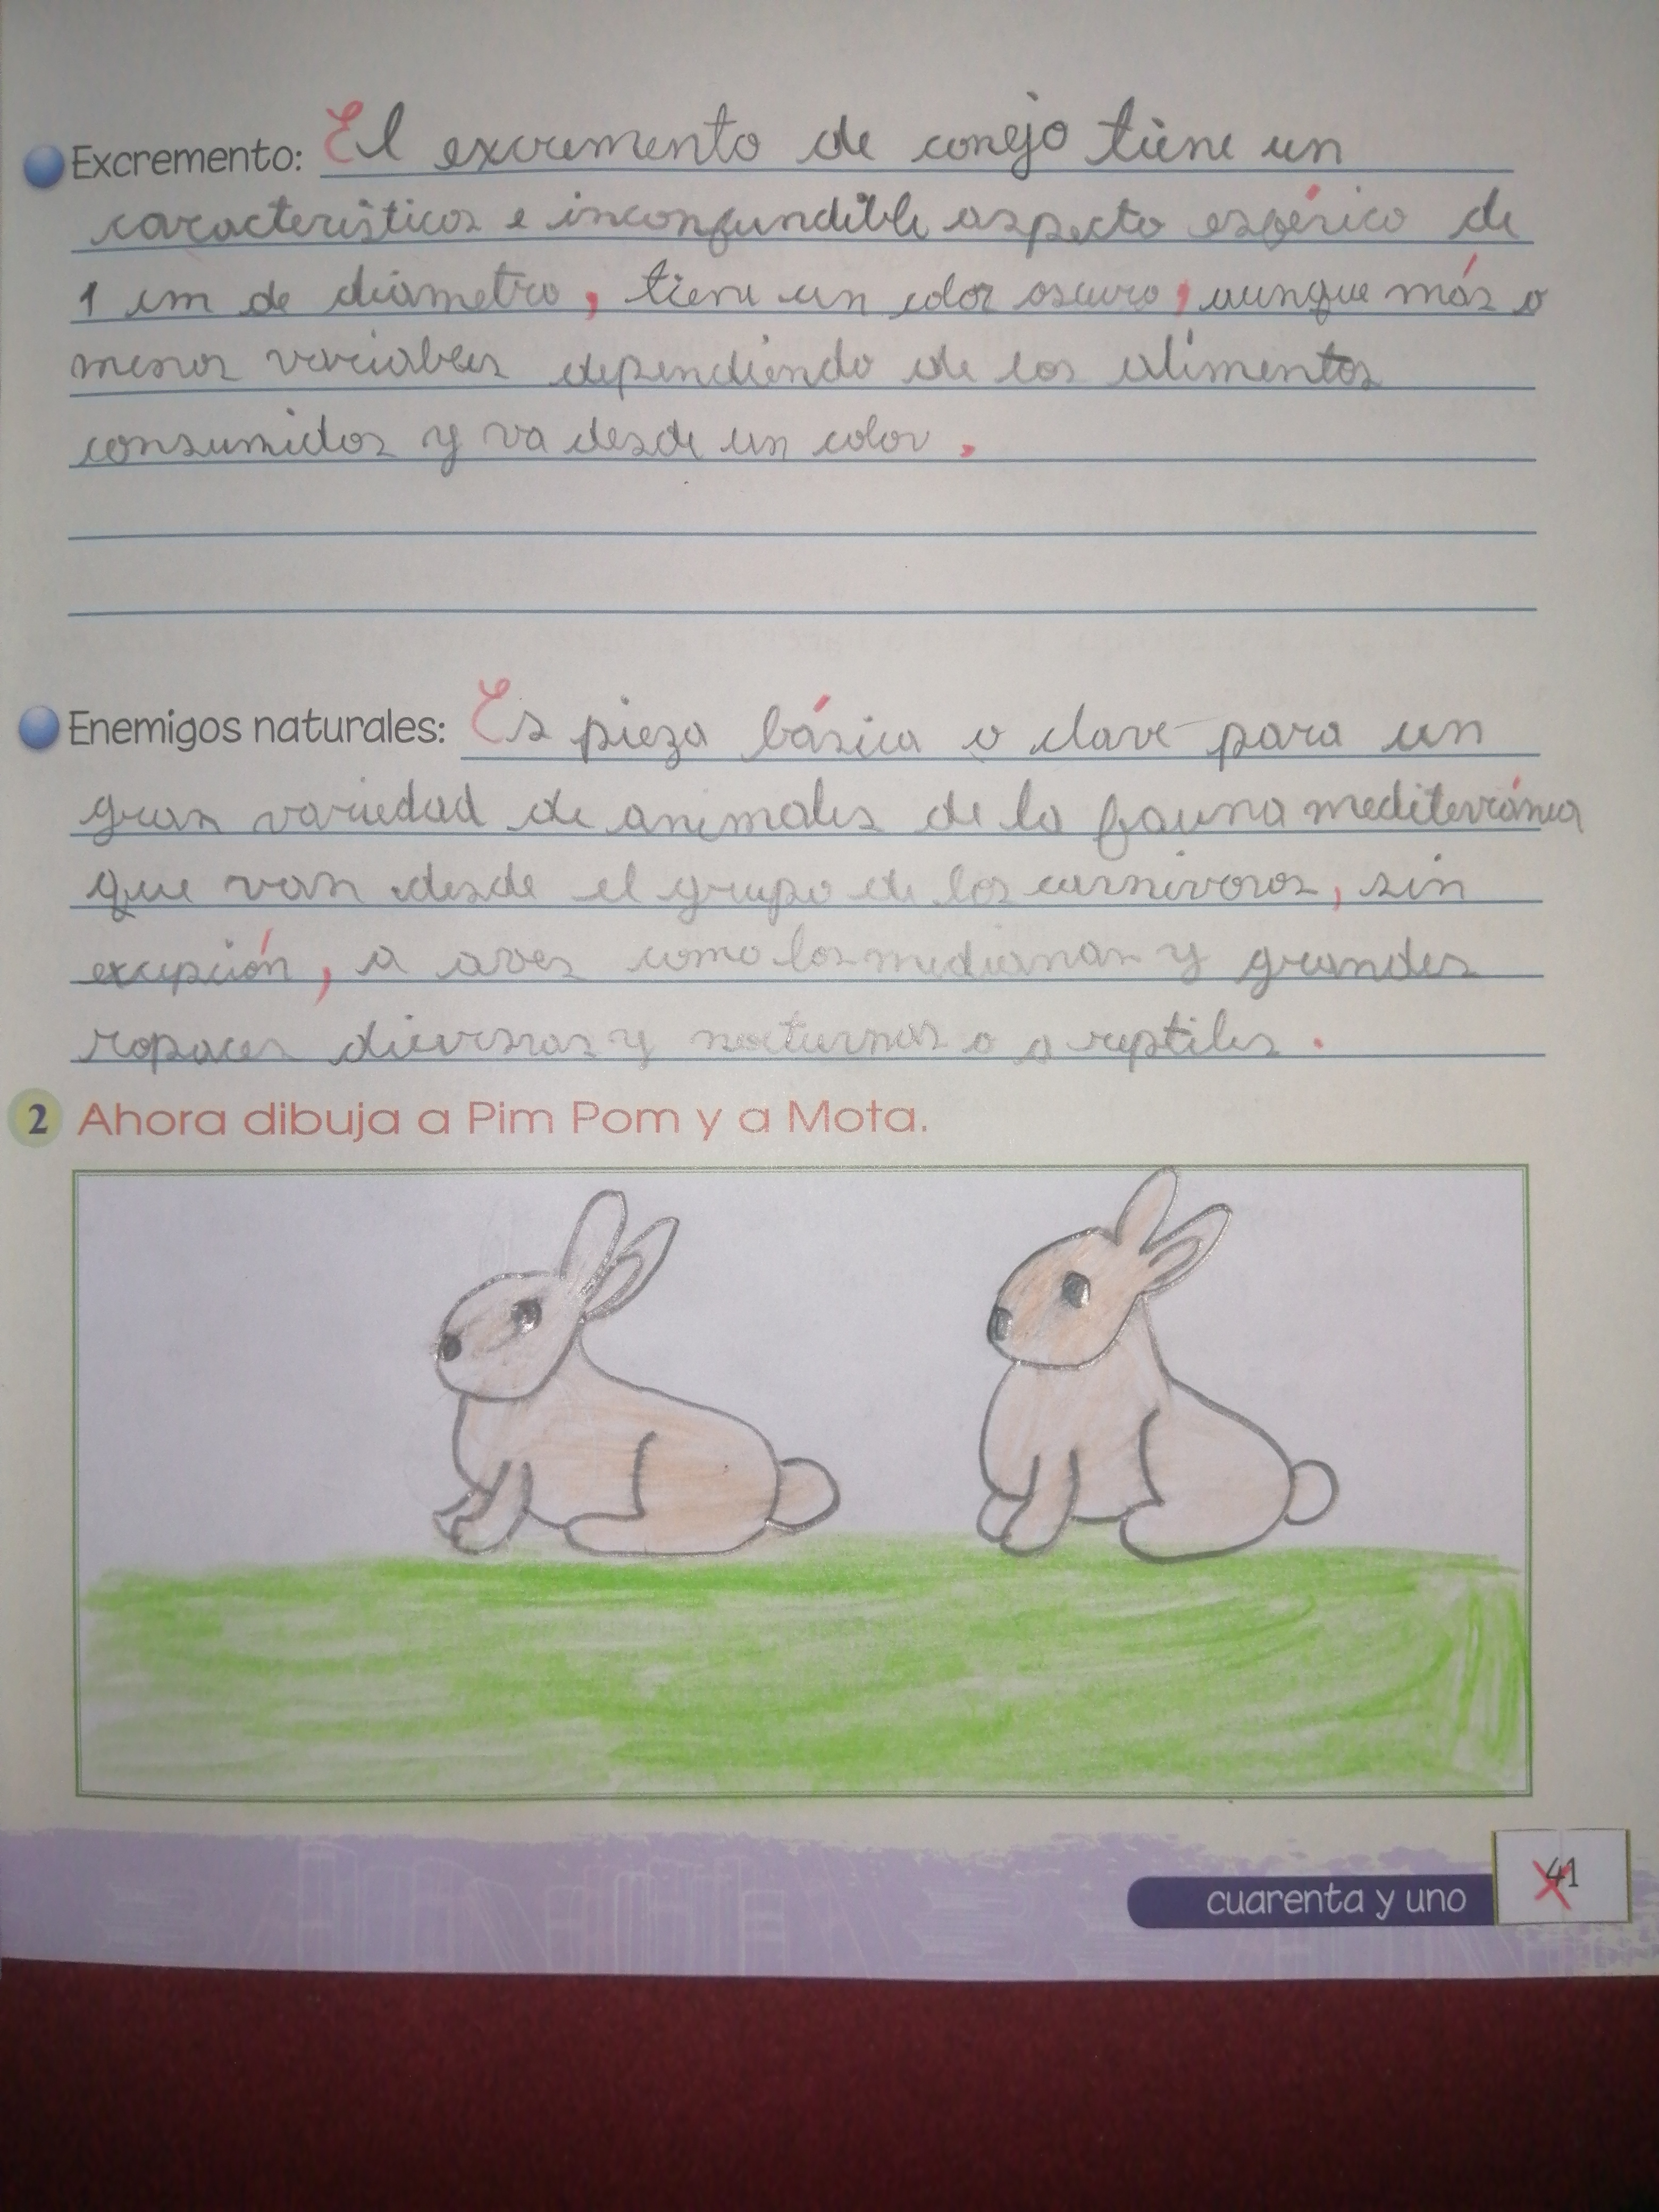 Excremento: El excremento de conejo tiene un
característicos e inconfundible aspecto esférico de
1 cm de diámetro, tiene un color oscuro, aunque más o
menos variables dependiendo de los alimentos
consumidos y va desde un color.
Enemigos naturales: Es pieza básica o clave para un
gran variedad de animales de la fauna mediterránea
que van desde el grupo de los carnivoros, sin
excepción, a aves como los medianas y grandes
rapaces y nocturnas o a reptiles.
2 Ahora dibuja a Pim Pom y a Mota.
cuarenta y uno
41